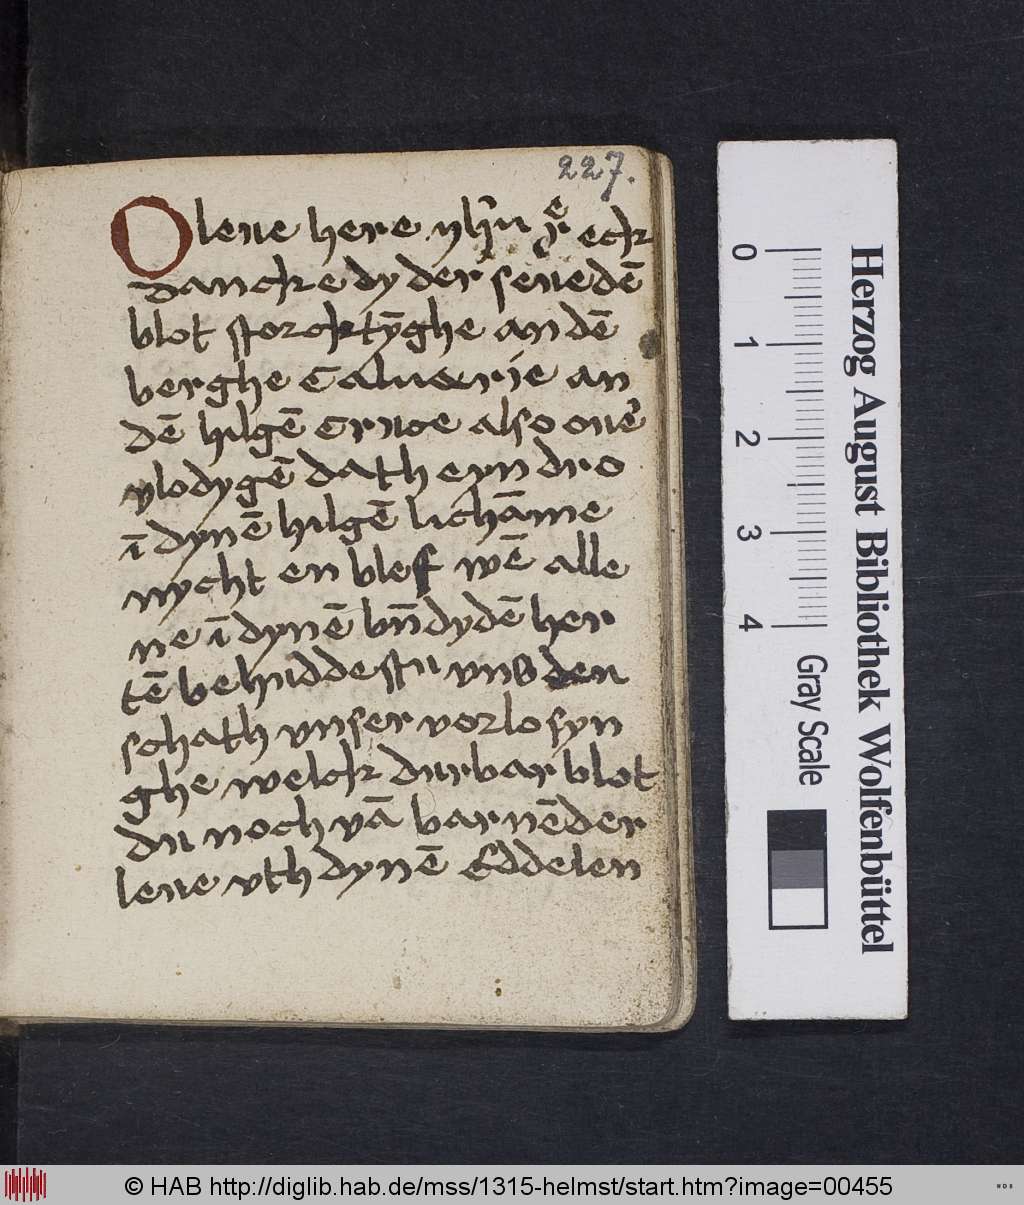 227.
O leue here yhū xe eck
dancke dy der seuedē
blot stortortȳghe an dē
berghe Caluaerie an
dē hilgē Cruce also oue᷑
vlodygē dath eyn dro
ī dynē hilgē lichāme
nycht en blef wē alle
ne ī dynē bn̄dydē her
tē behuddestu vns den
schath vnser vorlosyn
ghe welck durbar blot
du noch vā barnēder
leue vth dynē Eddelen
0
1
2
3
4
Gray Scale
Herzog August Bibliothek Wolfenbüttel
© HAB http://diglib.hab.de/mss/1315-helmst/start.htm?image=00455